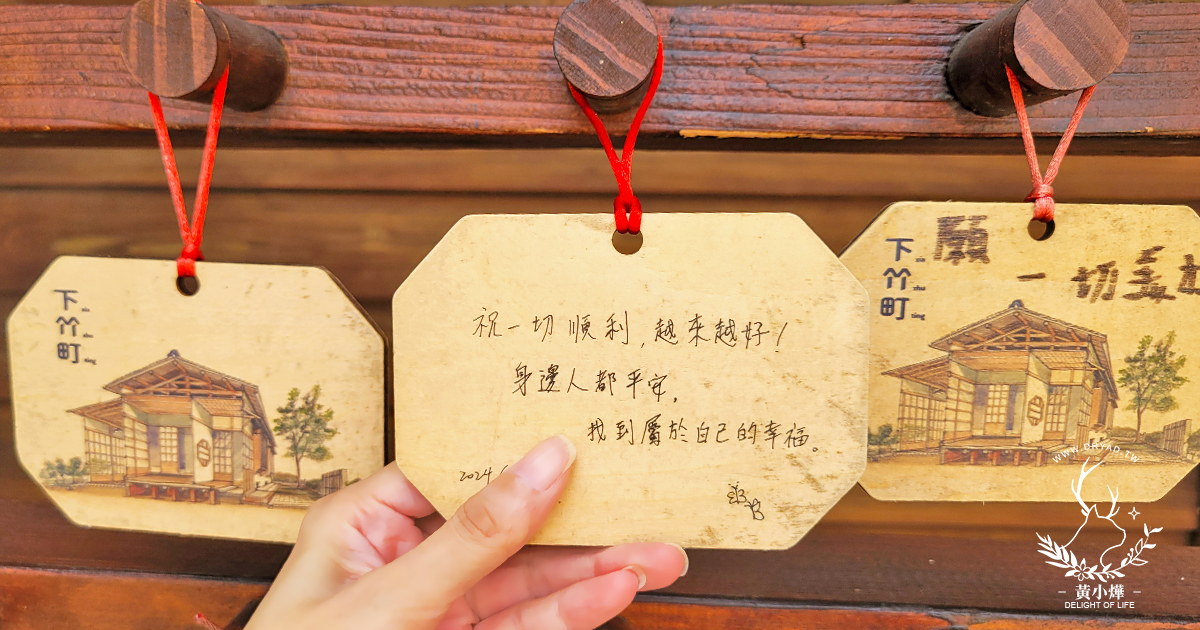 下竹町
祝一切順利，越來越好！
身邊人都平安，
找到屬於自己的幸福。
2024
下竹町
願
一切美
WWW.DRYAD.TW
黃小燁
DELIGHT OF LIFE